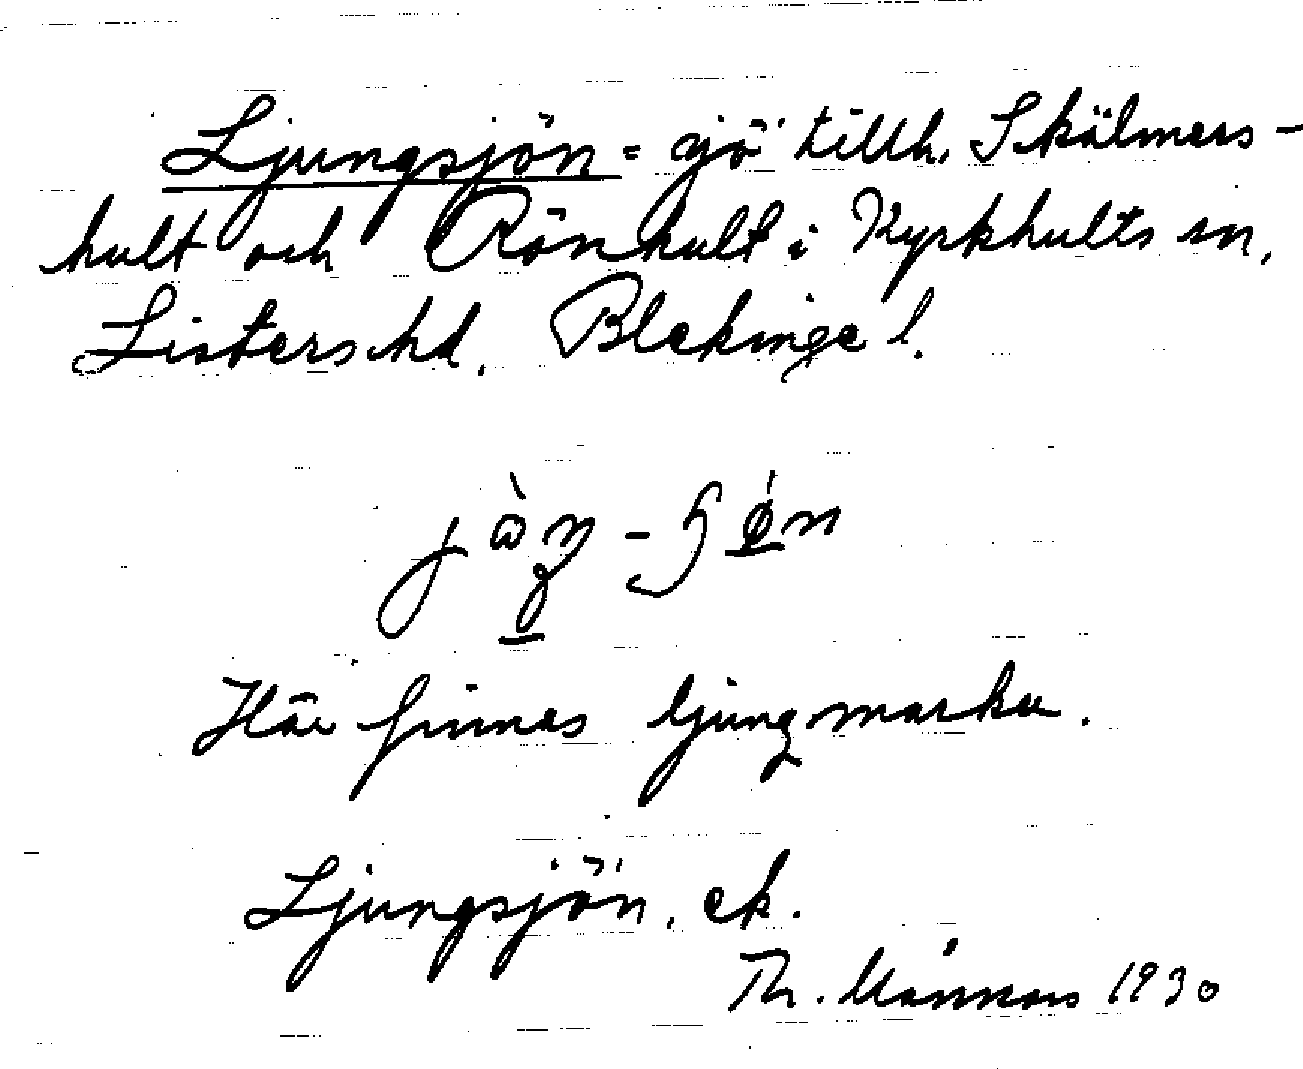 Ljungsjön = sjö tillh. Skälmers-
hult och Rönhult i Kyrkhults sn,
Listers hd. Blekinge l.
Här finnes ljungmarker.
Ljungsjön, ek.
Th. 1930